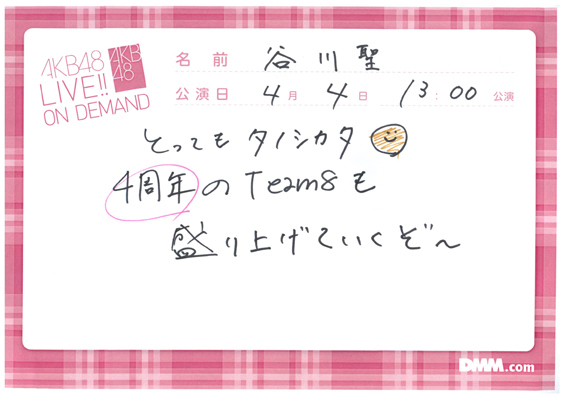 AKB48
LIVE!!
ON DEMAND
AKB
48
名前 谷川聖
公演日 4月 4日 13:00 公演
とってもタノシカタ
4周年のTeam8も
盛り上げていくぞ〜
DMM.com